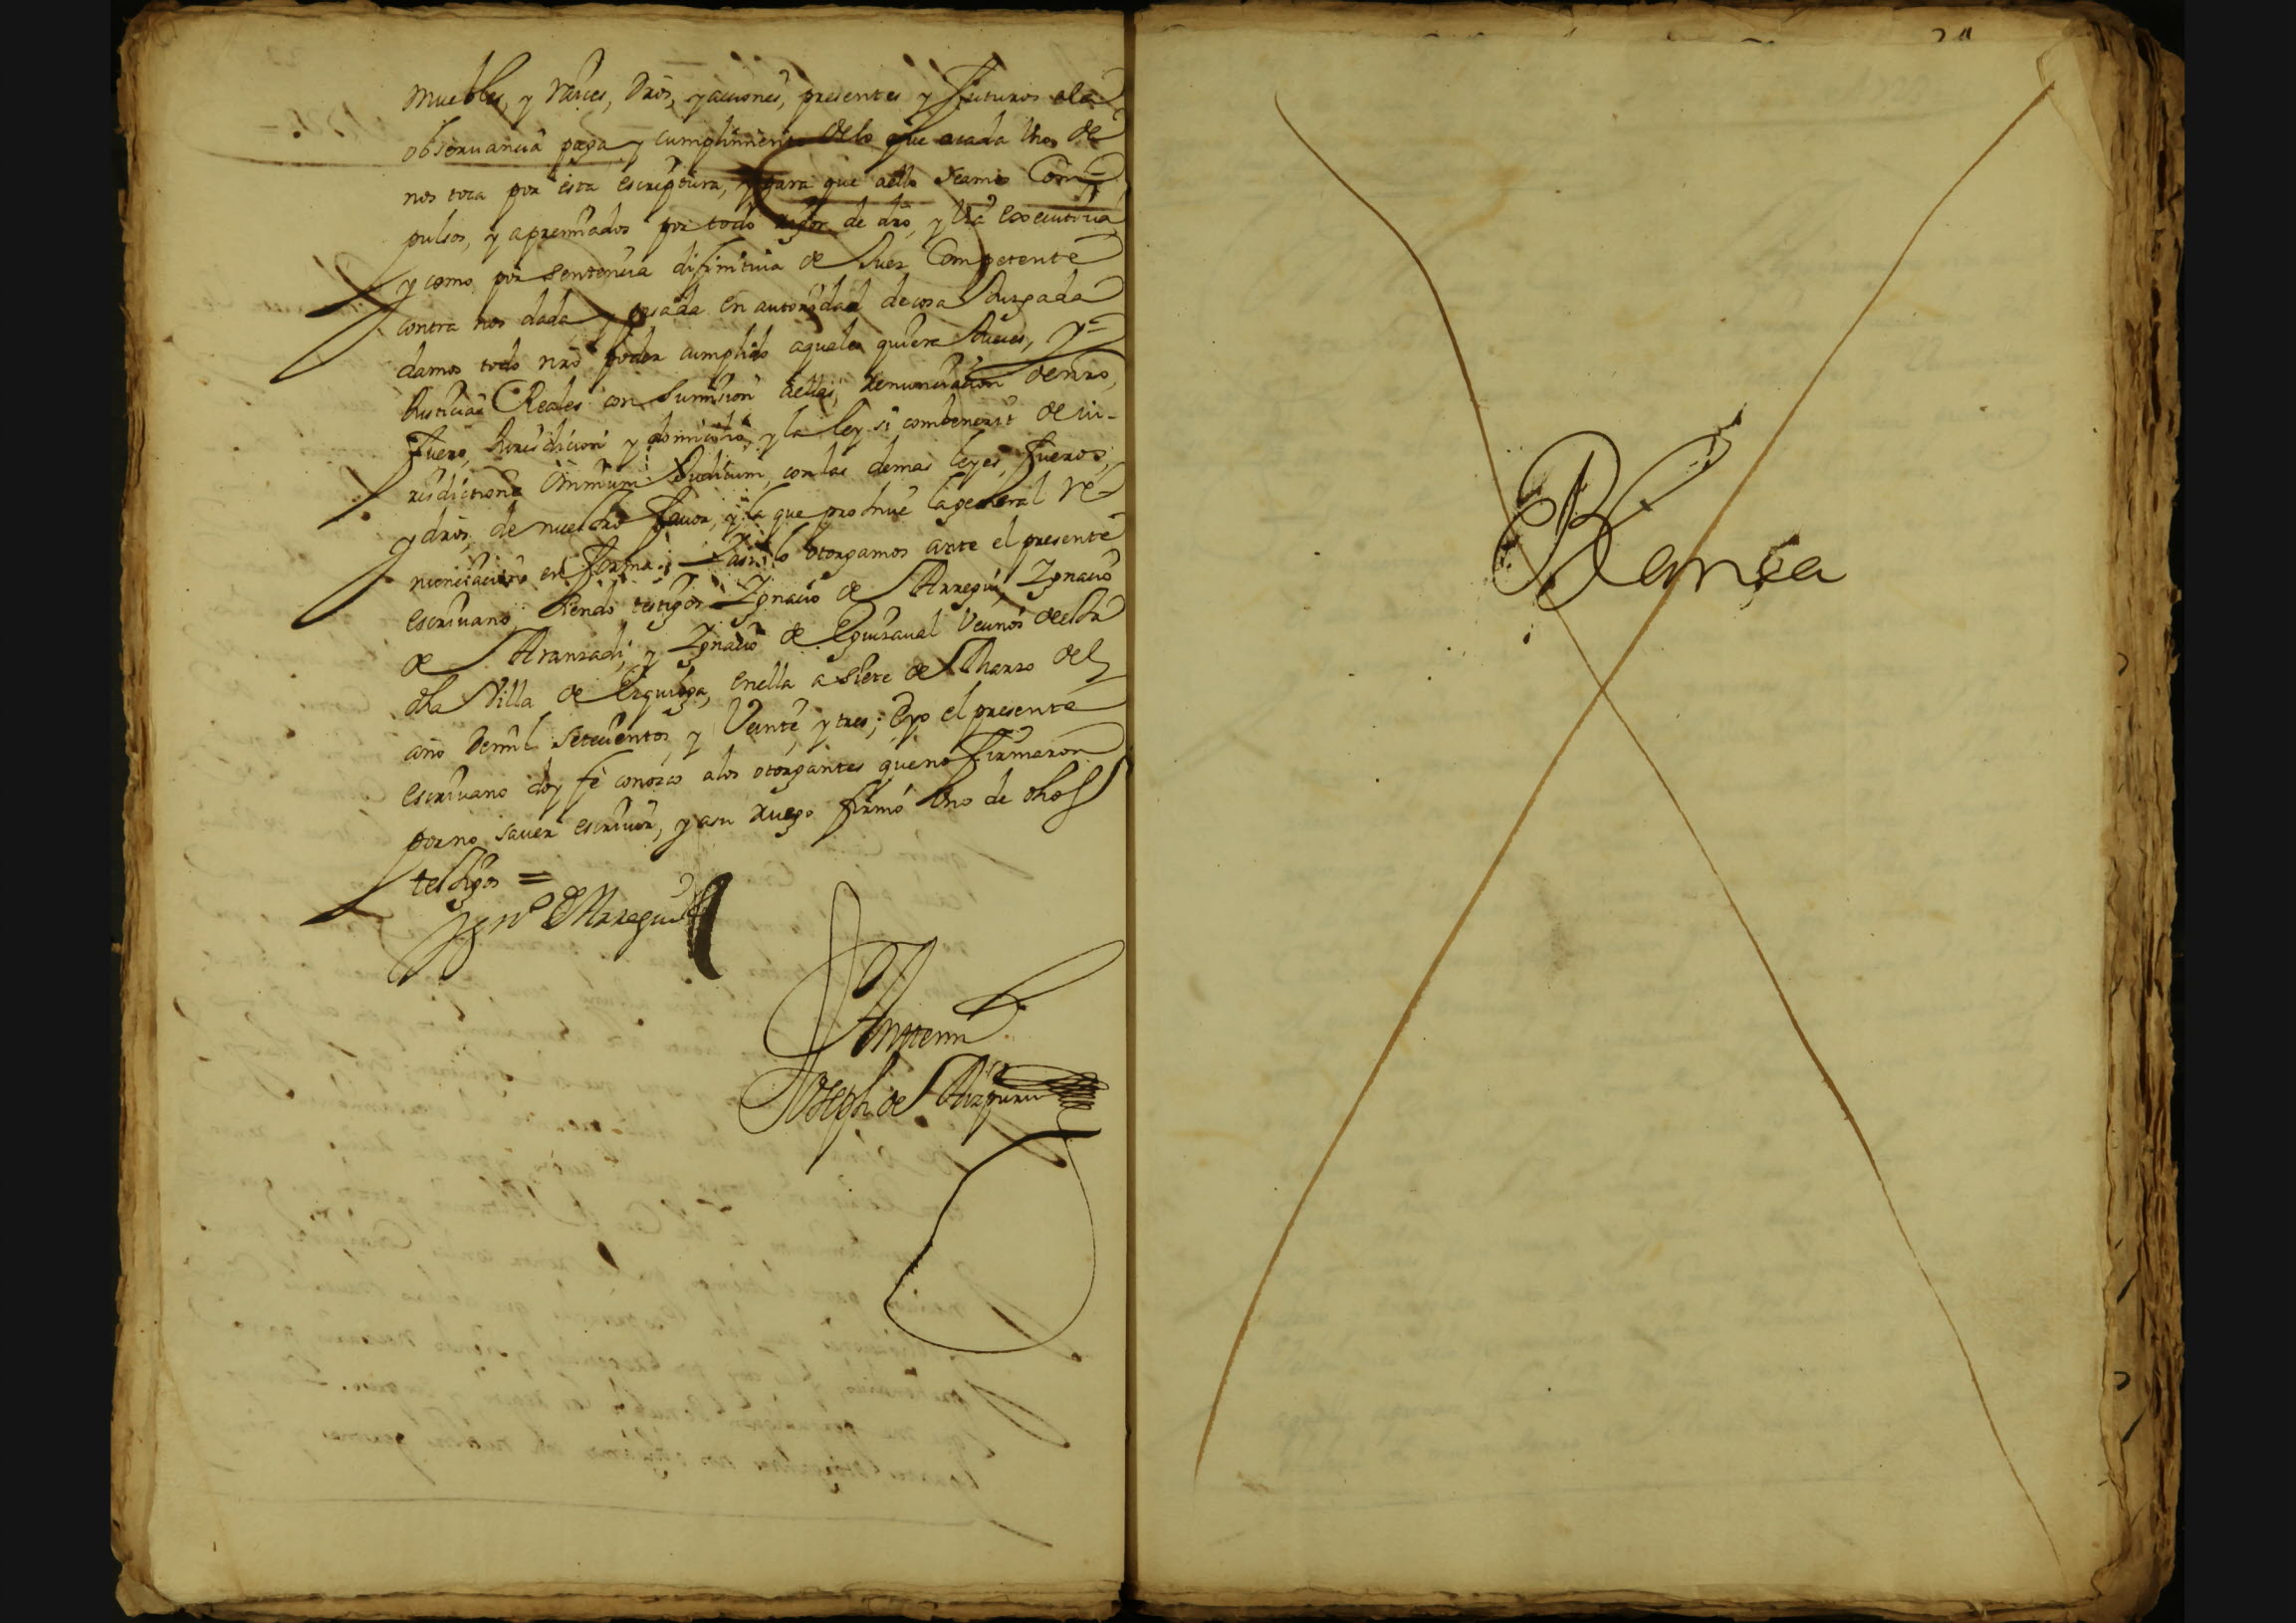 muebles, y raices, dros, y acciones, presentes y futuros ala
observancia paga y cumplimiento delo que acada Uno de
nos toca por esta escriptura, y para que aello seamos Com=
pulsos, y apremiados por todo rigor de dro, y Via executiva
y como por sentencia difinitiva de Juez Competente
contra nos dada y pasada en autoridad de cosa Juzgada
damos todo nro poder cumplido aqualesquiera Jueces, y=
Justicias Reales con sumision aellas, renunciacion denro,
fuero, Jurisdicion y domicilio, y la ley si combenerit de iu-
risdictione omnium Judicum, con las demas leyes, fueros,
y dros, de nuestro favor, y la que prohive la general re=
nunciacion en forma; Y asi lo otorgamos ante el presente
escrivano, siendo testigos Ignacio de Arregui, Ignacio
de Aranzadi, y Ignacio de Eguzaval Vecinos desta
dha Villa de Ezquioga, enella a siete de Marzo del
año demil setecientos y Veinte y tres; Eyo el presente
escrivano doy fe conozco alos otorgantes queno firmaron
porno saver escrivir, y asu ruego firmó Uno de dhos
testigos =
Ign.o de Arregui
Antemi
Joseph de Aizpuru
Blanca